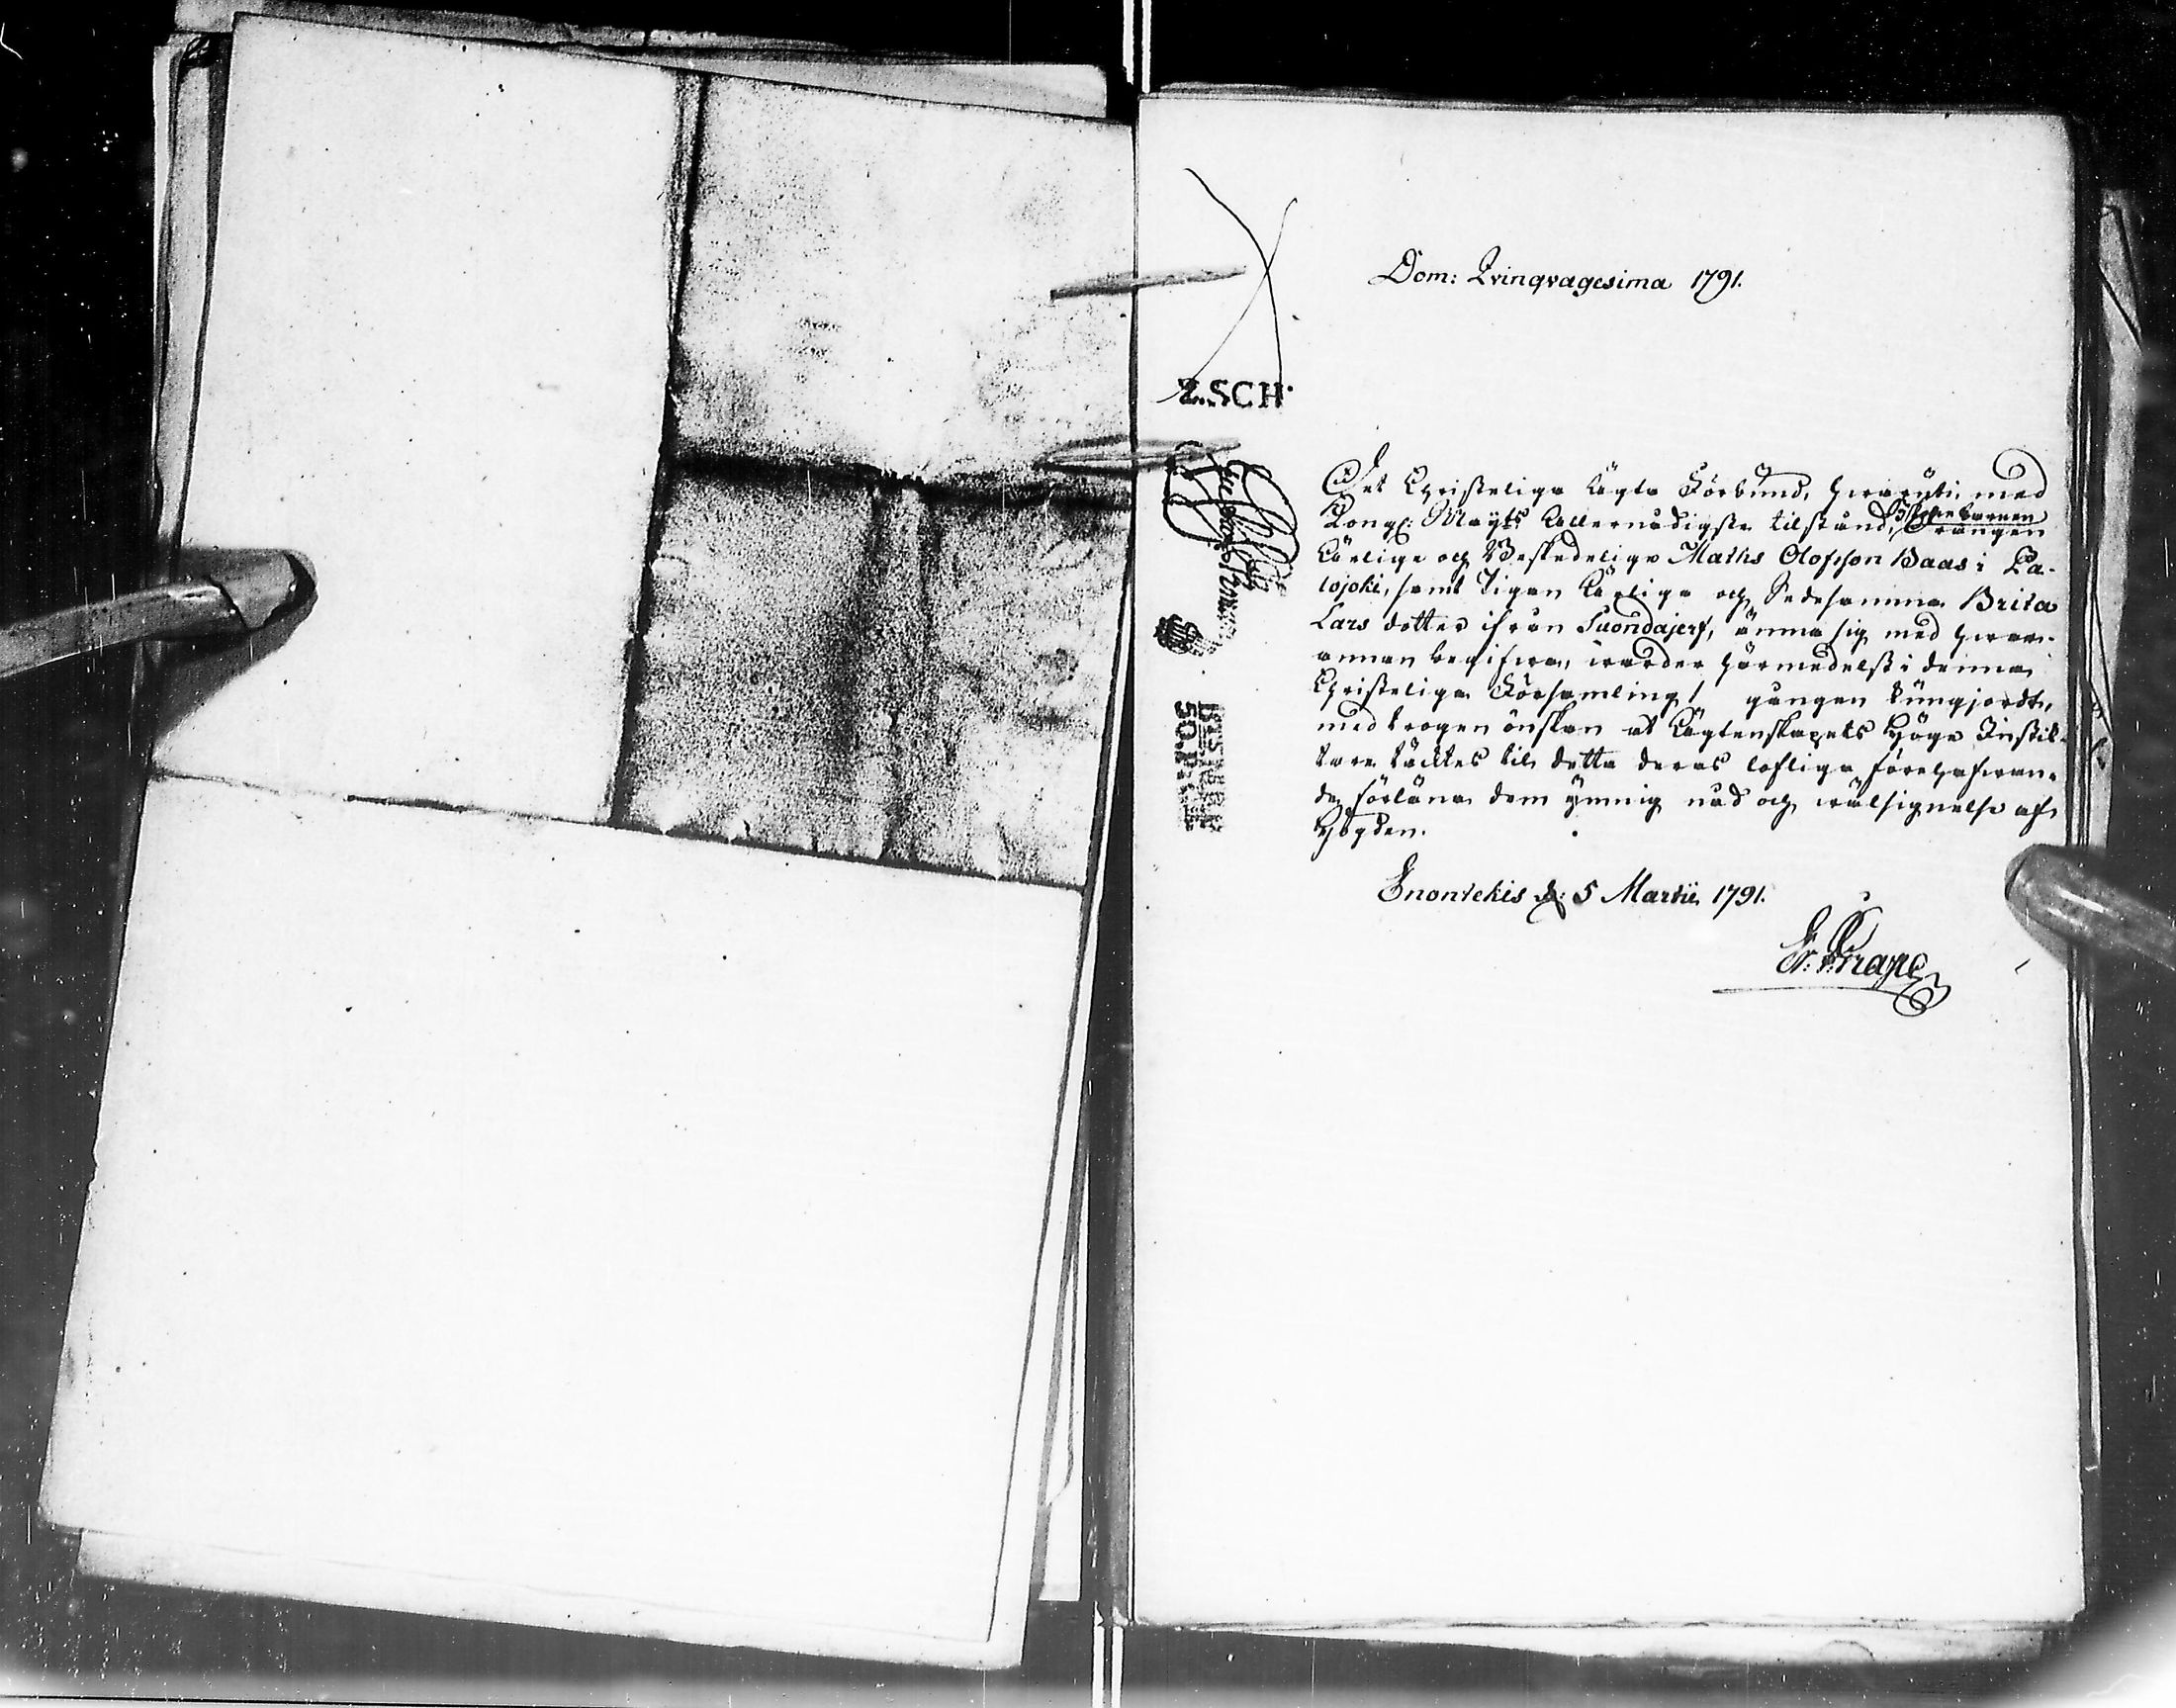 Dom: Qvinqvagesima 1791.
2.SCH
Det Christeliga Ägta Förbund, hvaruti med
Kongl: Maÿts Allernådigste tilstånd, Syskonebarnen
Drängen
Ärlige och Beskedelige Mathis Olofsson Baas i Pa-
lojoki, samt Pigan Ärliga och Sedesamma Brita
Lars dotter ifrån Suondajerf, ämna sig med hvar-
annan begifva, warder härmedelst i denna
Christeliga Församling 1 gången kungjordt,
med trogen önskan at Ägtenskapets Höga Instik-
tare täcktes til detta deras lofliga förehafvan-
de förläna dem ÿmnig nåd och wälsignelse af
Högden.
Enontekis d: 5 Martii 1791.